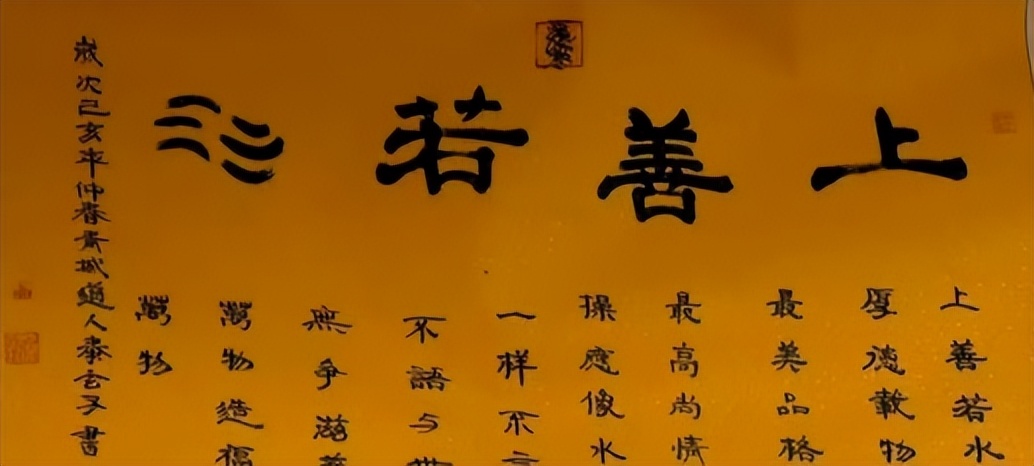 上善若水
上善若水
厚德載物
最美品格
最高尚情
操應像水
一样不
不語与
無争滋
萬物造福
萬物
歲次己亥年仲春青城道人泰玄子書